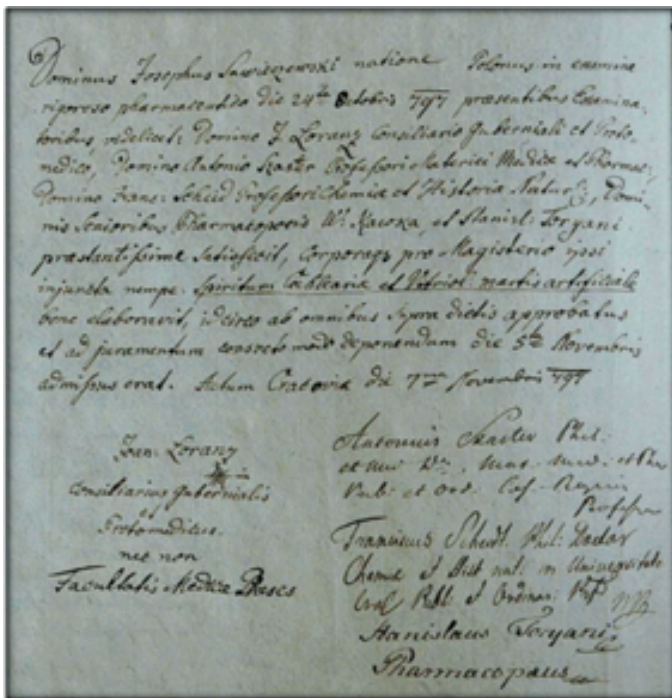 Dominus Josephus Sawiczewski natione Polonus in examine
rigoroso pharmaceutico die 24ta Octobris 797 præsentibus Examina-
toribus, videlicet: Domino J. Loranz Consiliario Guberniali et Proto-
medico, Domino Antonio Szaster Professori Materiei Medicæ et Pharmac:
Domino Franc: Scheid Professori Chemiæ et Historiæ Natur:, Domi-
nis Senioribus Pharmacopoeis W: et Stanisl: Toryani
præstantissime satisfecit, corporaqz pro Magisterio ipsi
injuncta nempe: Spiritum Cochleariæ et Vitriol: martis artificiale
bene elaboravit, idcirco ab omnibus supra dictis approbatus
et ad juramentum consveto modo deponendum die 5ta Novembris
admissus erat. Actum Cracoviæ die 7ma Novembris 797
Joan: Loranz
Consiliarius Gubernialis
et
Protomedicus
nec non
Facultatis Medicæ Præses
Antonius Szaster Phil:
et Mat: Med: et Phar
Pub: et Ord: Cæs: Regius
Professor
Franciscus Scheidt Phil: Doctor
Chemiæ et Hist nat: in Universitate
Publ: et Ordinar: Prof
Stanislaus Toryani
Pharmacopæus